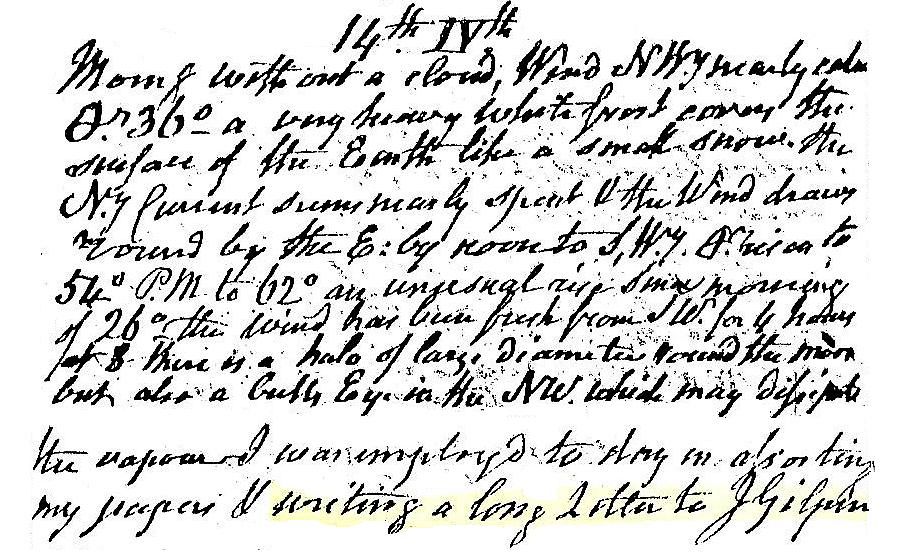 14th IVth
Morng without a cloud, Wind NWy nearly calm
Fr. 36° a very heavy white frost covers the
surface of the Earth like a small snow. the
N.y Current seems nearly spent & the Wind draws
round by the E: by noon to S,W.y. Fr. risen to
54° P.M to 62° an unusual rise since morning
of 26° the wind has been fresh from SW. for 4 hours
at 8 there is a halo of large diameter round the moon
but also a bulls Eye in the NW. which may dissipate
the vapour I was employ'd to day in assorting
my papers & writing a long Letter to J Gilpin